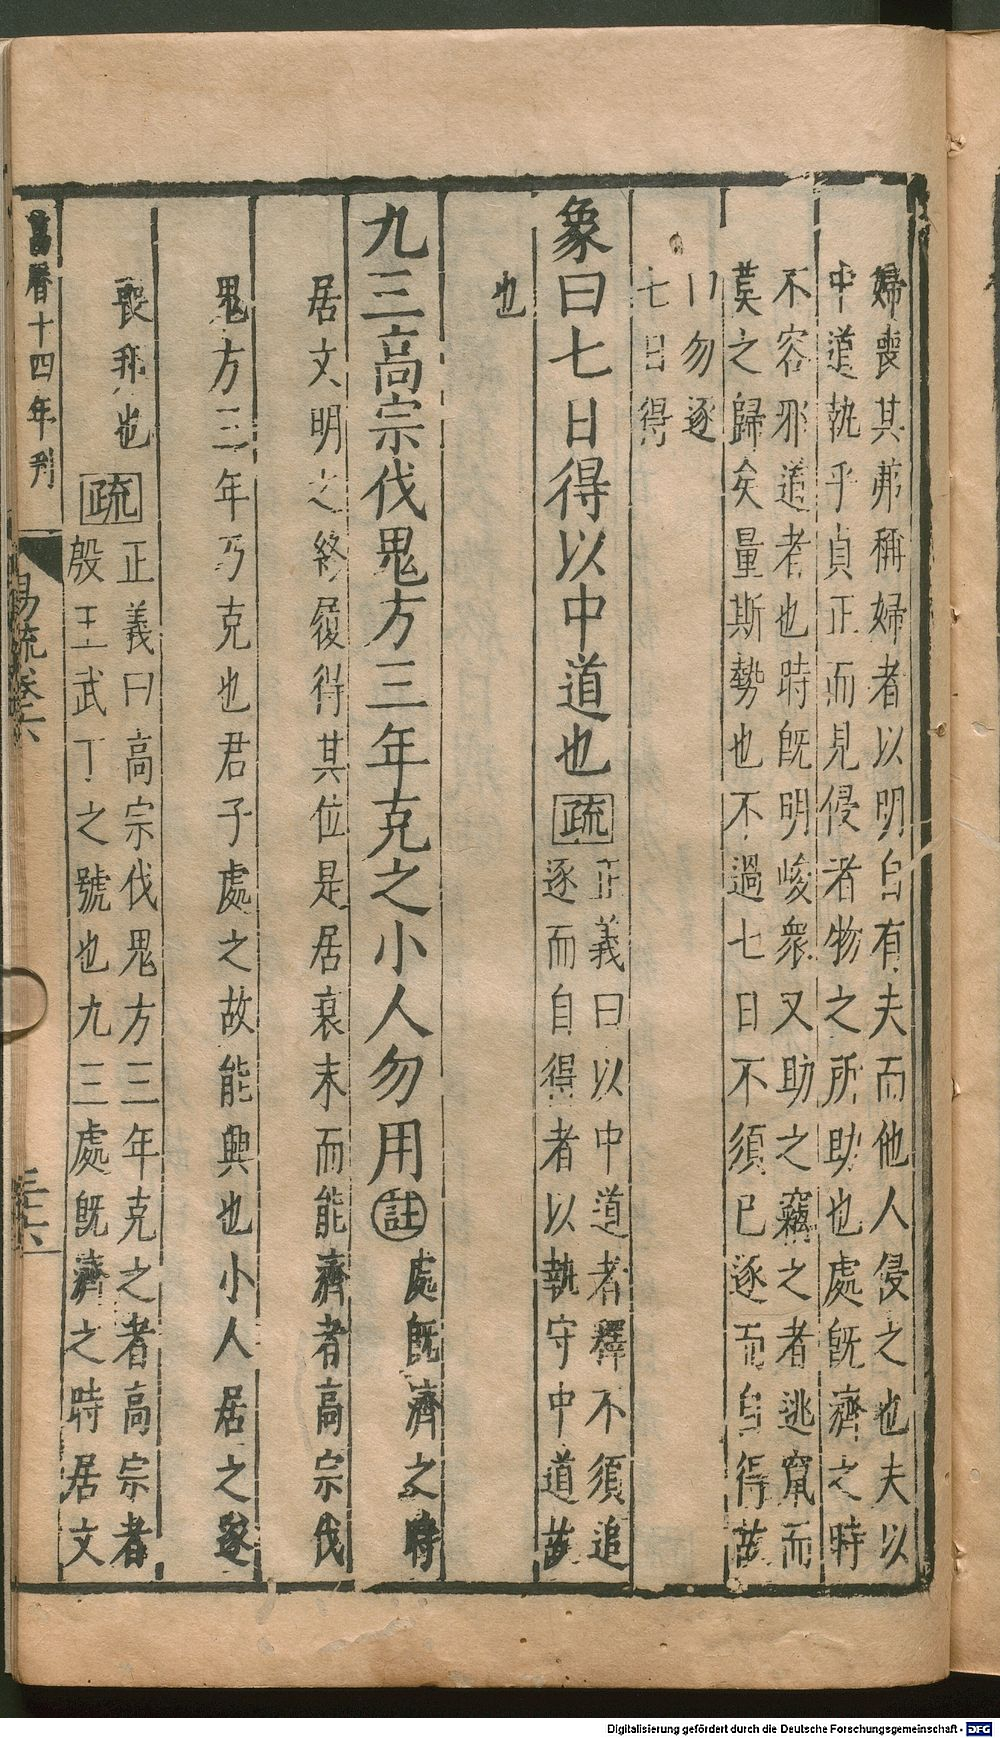 婦喪其茀稱婦者以明自有夫而他人侵之也夫以
中道執乎貞正而見侵者物之所助也處旣濟之時
不容邪道者也時旣明峻衆又助之竊之者逃竄而
莫之歸矣量斯勢也不過七日不須已逐而自得故
曰勿逐
七日得
象曰七日得以中道也 疏 正義曰以中道者釋不須追
逐而自得者以執守中道故
也
九三高宗伐鬼方三年克之小人勿用 註 處旣濟之時
居文明之終履得其位是居衰末而能濟者高宗伐
鬼方三年乃克也君子處之故能興也小人居之遂
喪邦也 疏 正義曰高宗伐鬼方三年克之者高宗者
殷王武丁之號也九三處旣濟之時居文
萬曆十四年刋
易疏卷六
三六
Digitalisierung gefördert durch die Deutsche Forschungsgemeinschaft - DFG